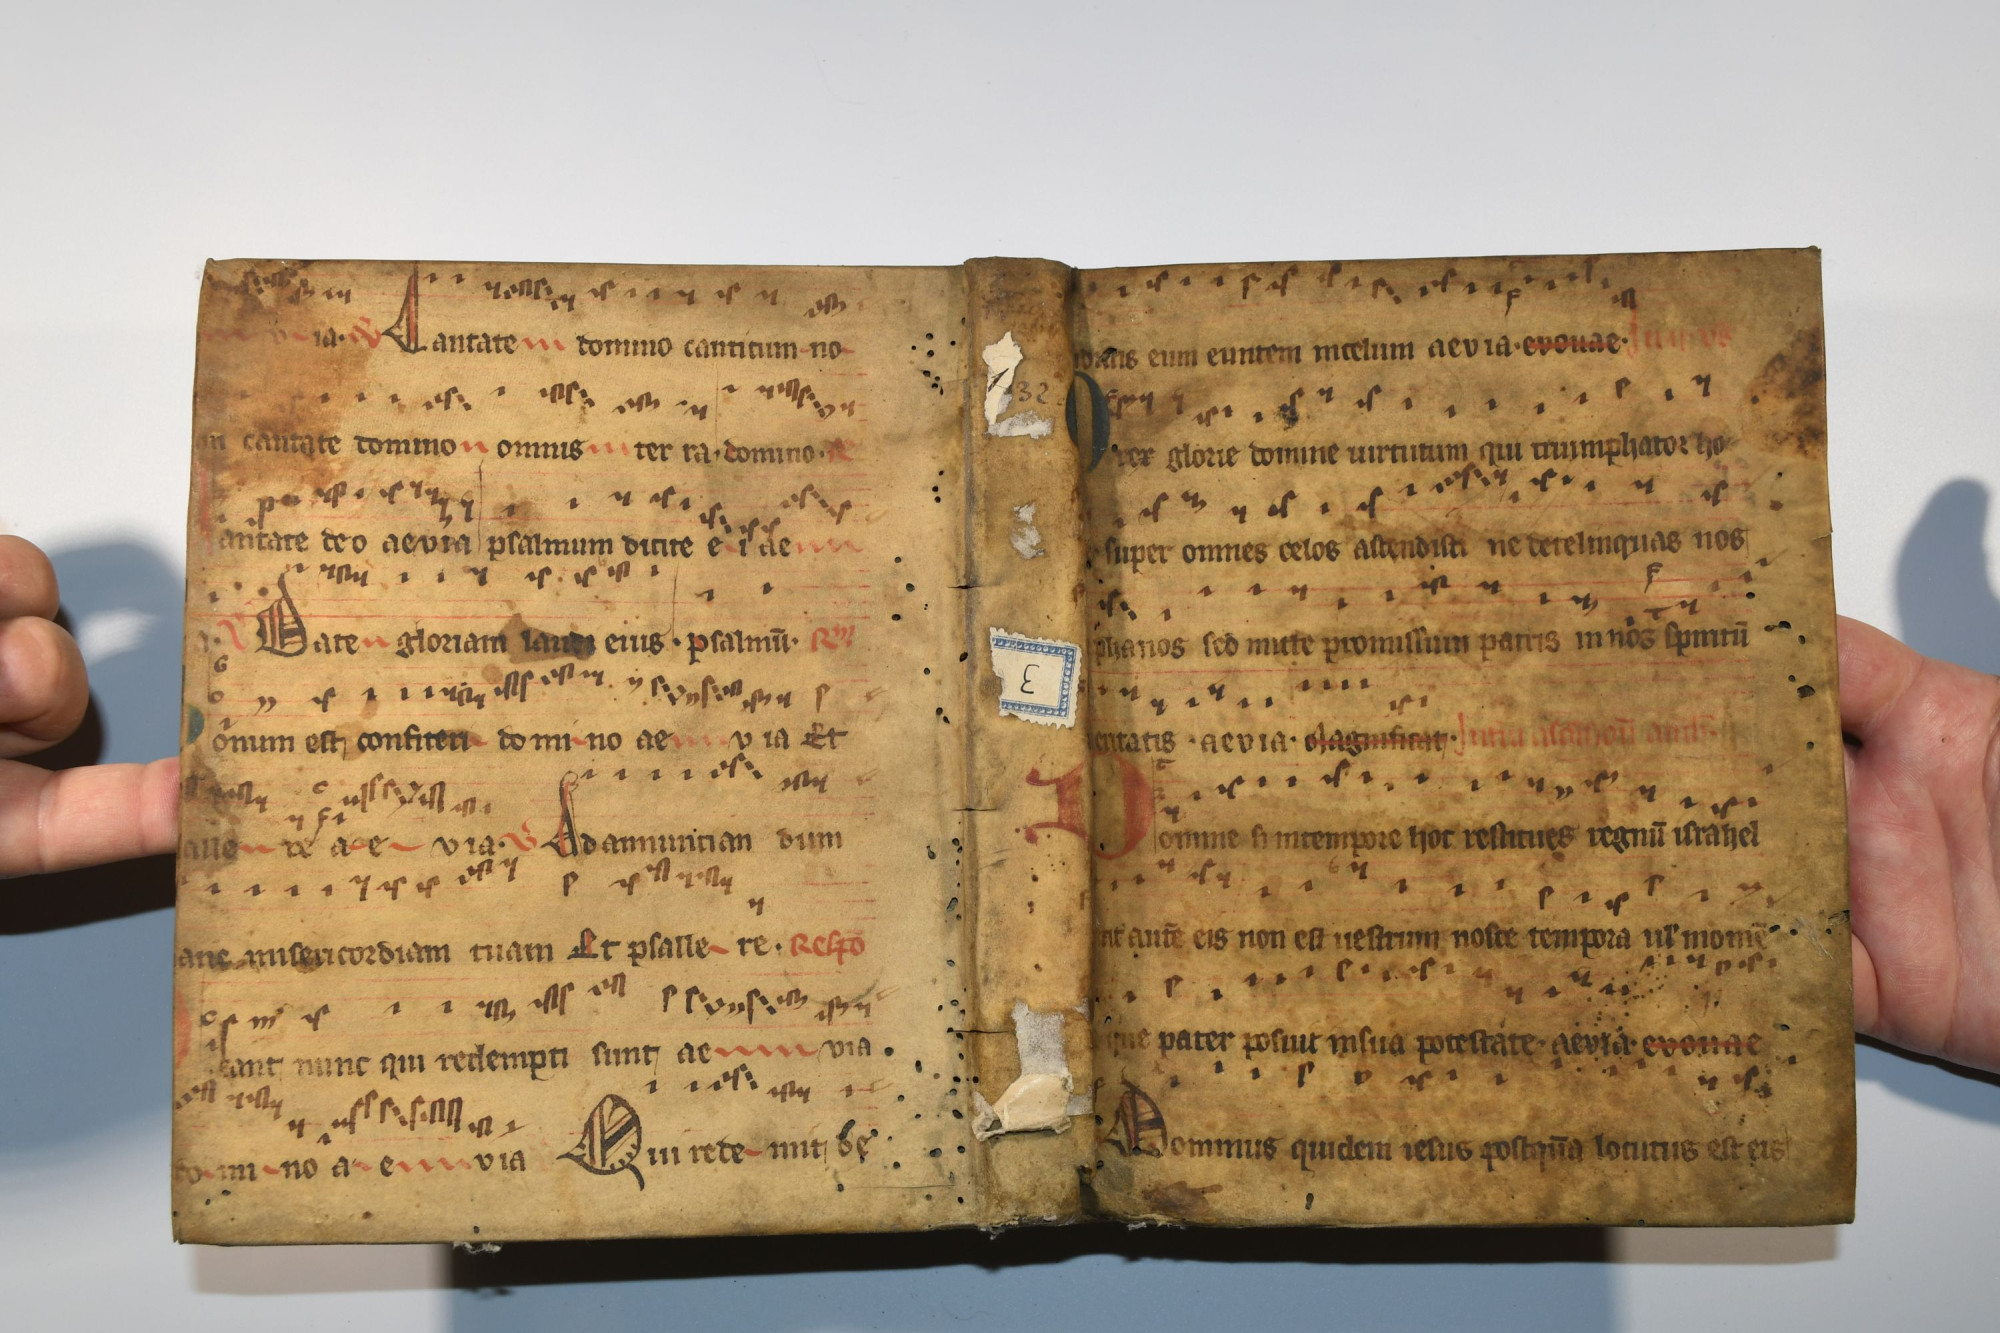 ia· Cantate domino canticum no
cantate domino omnis ter ra· domino·
antate deo aevia psalmum dicite e i ae
Date gloriam laudi eius· psalmū· Rm
onum est confiteri do mi no ae v ia Et
alle re a e via· V Ad annuntian dum
ane misericordiam tuam Et psalle re· Respō
cant nunc qui redempti sunt ae via
mi no a e via Qui rede mit
32
3
eum euntem incelum aevia· evouae· In
O rex glorie domine uirtutum qui triumphator ho
super omnes celos ascendisti ne derelinquas nos
phanos sed mitte promissum patris in nos spiritū
entatis· aevia· Magnificat·
Domine si intempore hoc restitues regnū israhel
aute eis non est uestrum nosce tempora ul mome
que pater posuit insua potestate· aevia· evouae
Dominus quidem iesus postqua locutus est eis